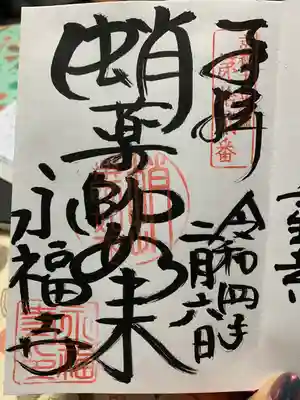 奉拝
蛸薬師如来
永福寺
令和四年
二月六日